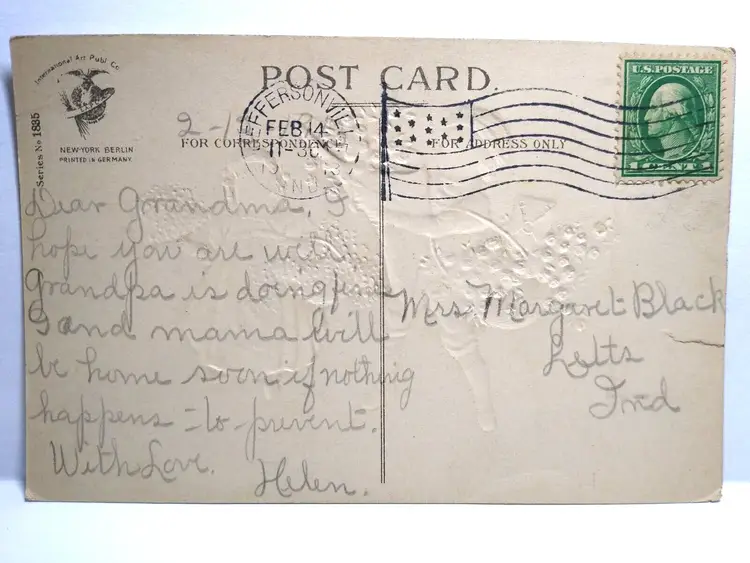 International Art Publ. Co.
NEW-YORK BERLIN
PRINTED IN GERMANY
Series No 1835
POST CARD.
FOR CORRESPONDENCE
FOR ADDRESS ONLY
JEFFERSONVILLE
FEB 14
11-30
IND
U.S. POSTAGE
1 CENT 1
2-1
Dear Grandma, I
hope you are well
Grandpa is doing fine
I and mama will
be home soon if nothing
happens to prevent.
With Love.
Helen.
Mrs Margaret Black
Letts
Ind